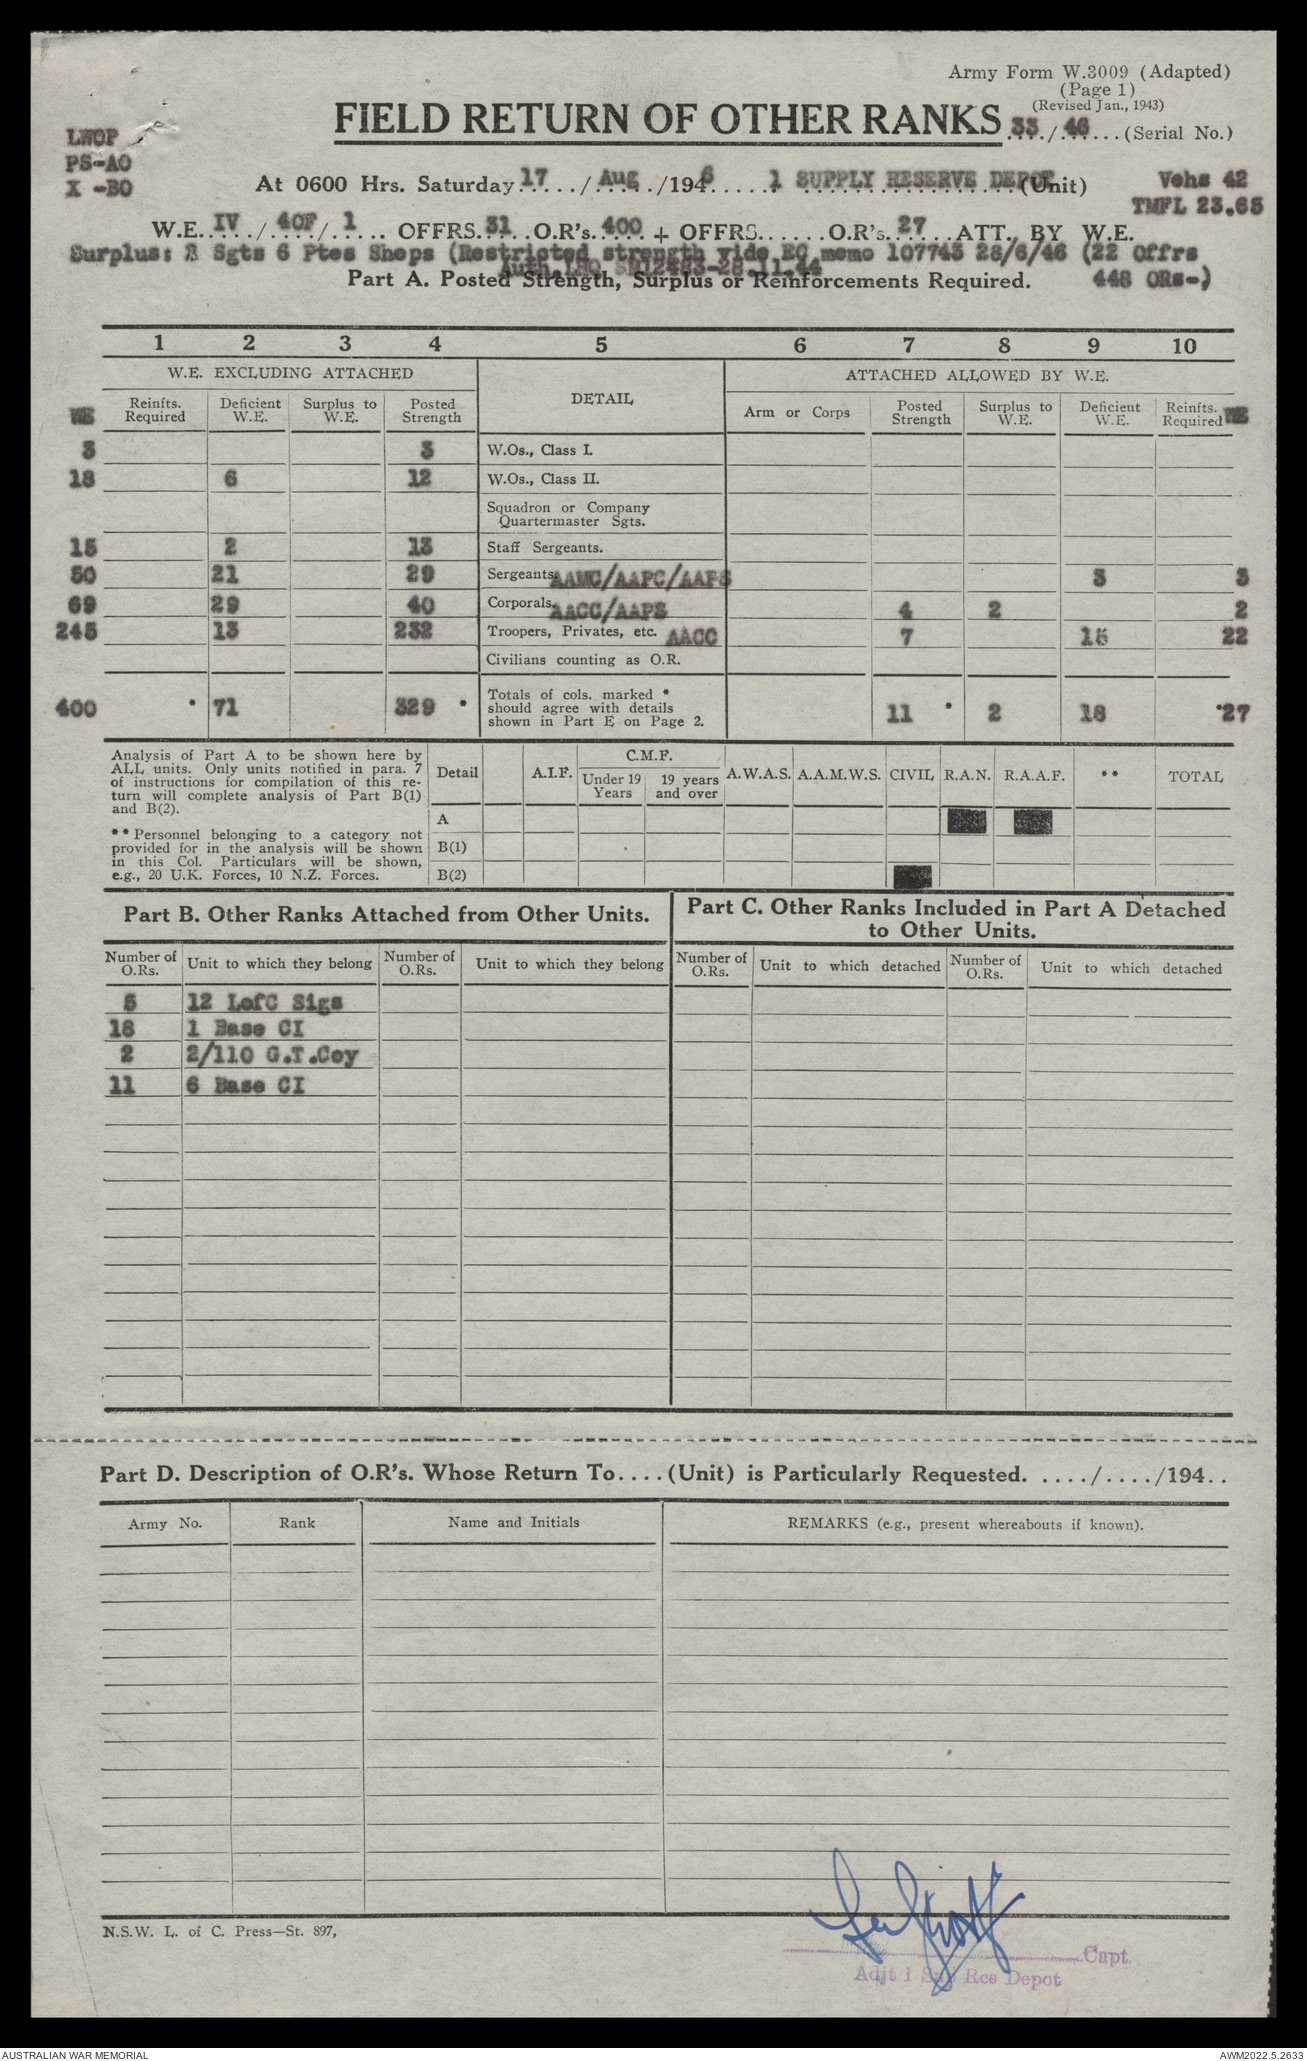 Army Form W.3009 (Adapted)
(Page 1)
(Revised Jan., 1943)
FIELD RETURN OF OTHER RANKS 33 / 46 (Serial No.)
LWOP
PS-AO
X -BO
At 0600 Hrs. Saturday 17 / Aug /1946 1 SUPPLY RESERVE DEPOT (Unit)
Vehs 42
TMFL 23.65
W.E. IV / 40F / 1 OFFRS. 31 O.R's. 400 + OFFRS. O.R's. 27 ATT. BY W.E.
Surplus: Sgts 6 Ptes Shops (Restricted strength vide memo 107743 28/6/46 (22 Offrs
448 ORs-)
Part A. Posted Strength, Surplus or Reinforcements Required.
1 2 3 4 5 6 7 8 9 10
W.E. EXCLUDING ATTACHED DETAIL ATTACHED ALLOWED BY W.E.
WE Reinfts. Required Deficient W.E. Surplus to W.E. Posted Strength Arm or Corps Posted Strength Surplus to W.E. Deficient W.E. Reinfts. Required WE
3 3 W.Os., Class I.
18 6 12 W.Os., Class II.
Squadron or Company
Quartermaster Sgts.
15 2 13 Staff Sergeants.
50 21 29 Sergeants. AAMC/AAPC/AAPS 3 3
69 29 40 Corporals. AACC/AAPS 4 2 2
245 13 232 Troopers, Privates, etc. AACC 7 15 22
Civilians counting as O.R.
400 * 71 329 * Totals of cols. marked * should agree with details shown in Part E on Page 2. 11 * 2 18 *27
Analysis of Part A to be shown here by
ALL units. Only units notified in para. 7
of instructions for compilation of this re-
turn will complete analysis of Part B(1)
and B(2).
** Personnel belonging to a category not
provided for in the analysis will be shown
in this Col. Particulars will be shown,
e.g., 20 U.K. Forces, 10 N.Z. Forces.
Detail A.I.F. C.M.F. Under 19 Years 19 years and over A.W.A.S. A.A.M.W.S. CIVIL R.A.N. R.A.A.F. ** TOTAL
A
B(1)
B(2)
Part B. Other Ranks Attached from Other Units.
Part C. Other Ranks Included in Part A Detached
to Other Units.
Number of O.Rs. Unit to which they belong Number of O.Rs. Unit to which they belong Number of O.Rs. Unit to which detached Number of O.Rs. Unit to which detached
5 12 LofC Sigs
18 1 Base CI
2 2/110 G.T.Coy
11 6 Base CI
Part D. Description of O.R's. Whose Return To....(Unit) is Particularly Requested. ..../..../194..
Army No. Rank Name and Initials REMARKS (e.g., present whereabouts if known).
N.S.W. L. of C. Press—St. 897,
Capt.
Adjt 1 Res Depot
AUSTRALIAN WAR MEMORIAL
AWM2022.5.2633